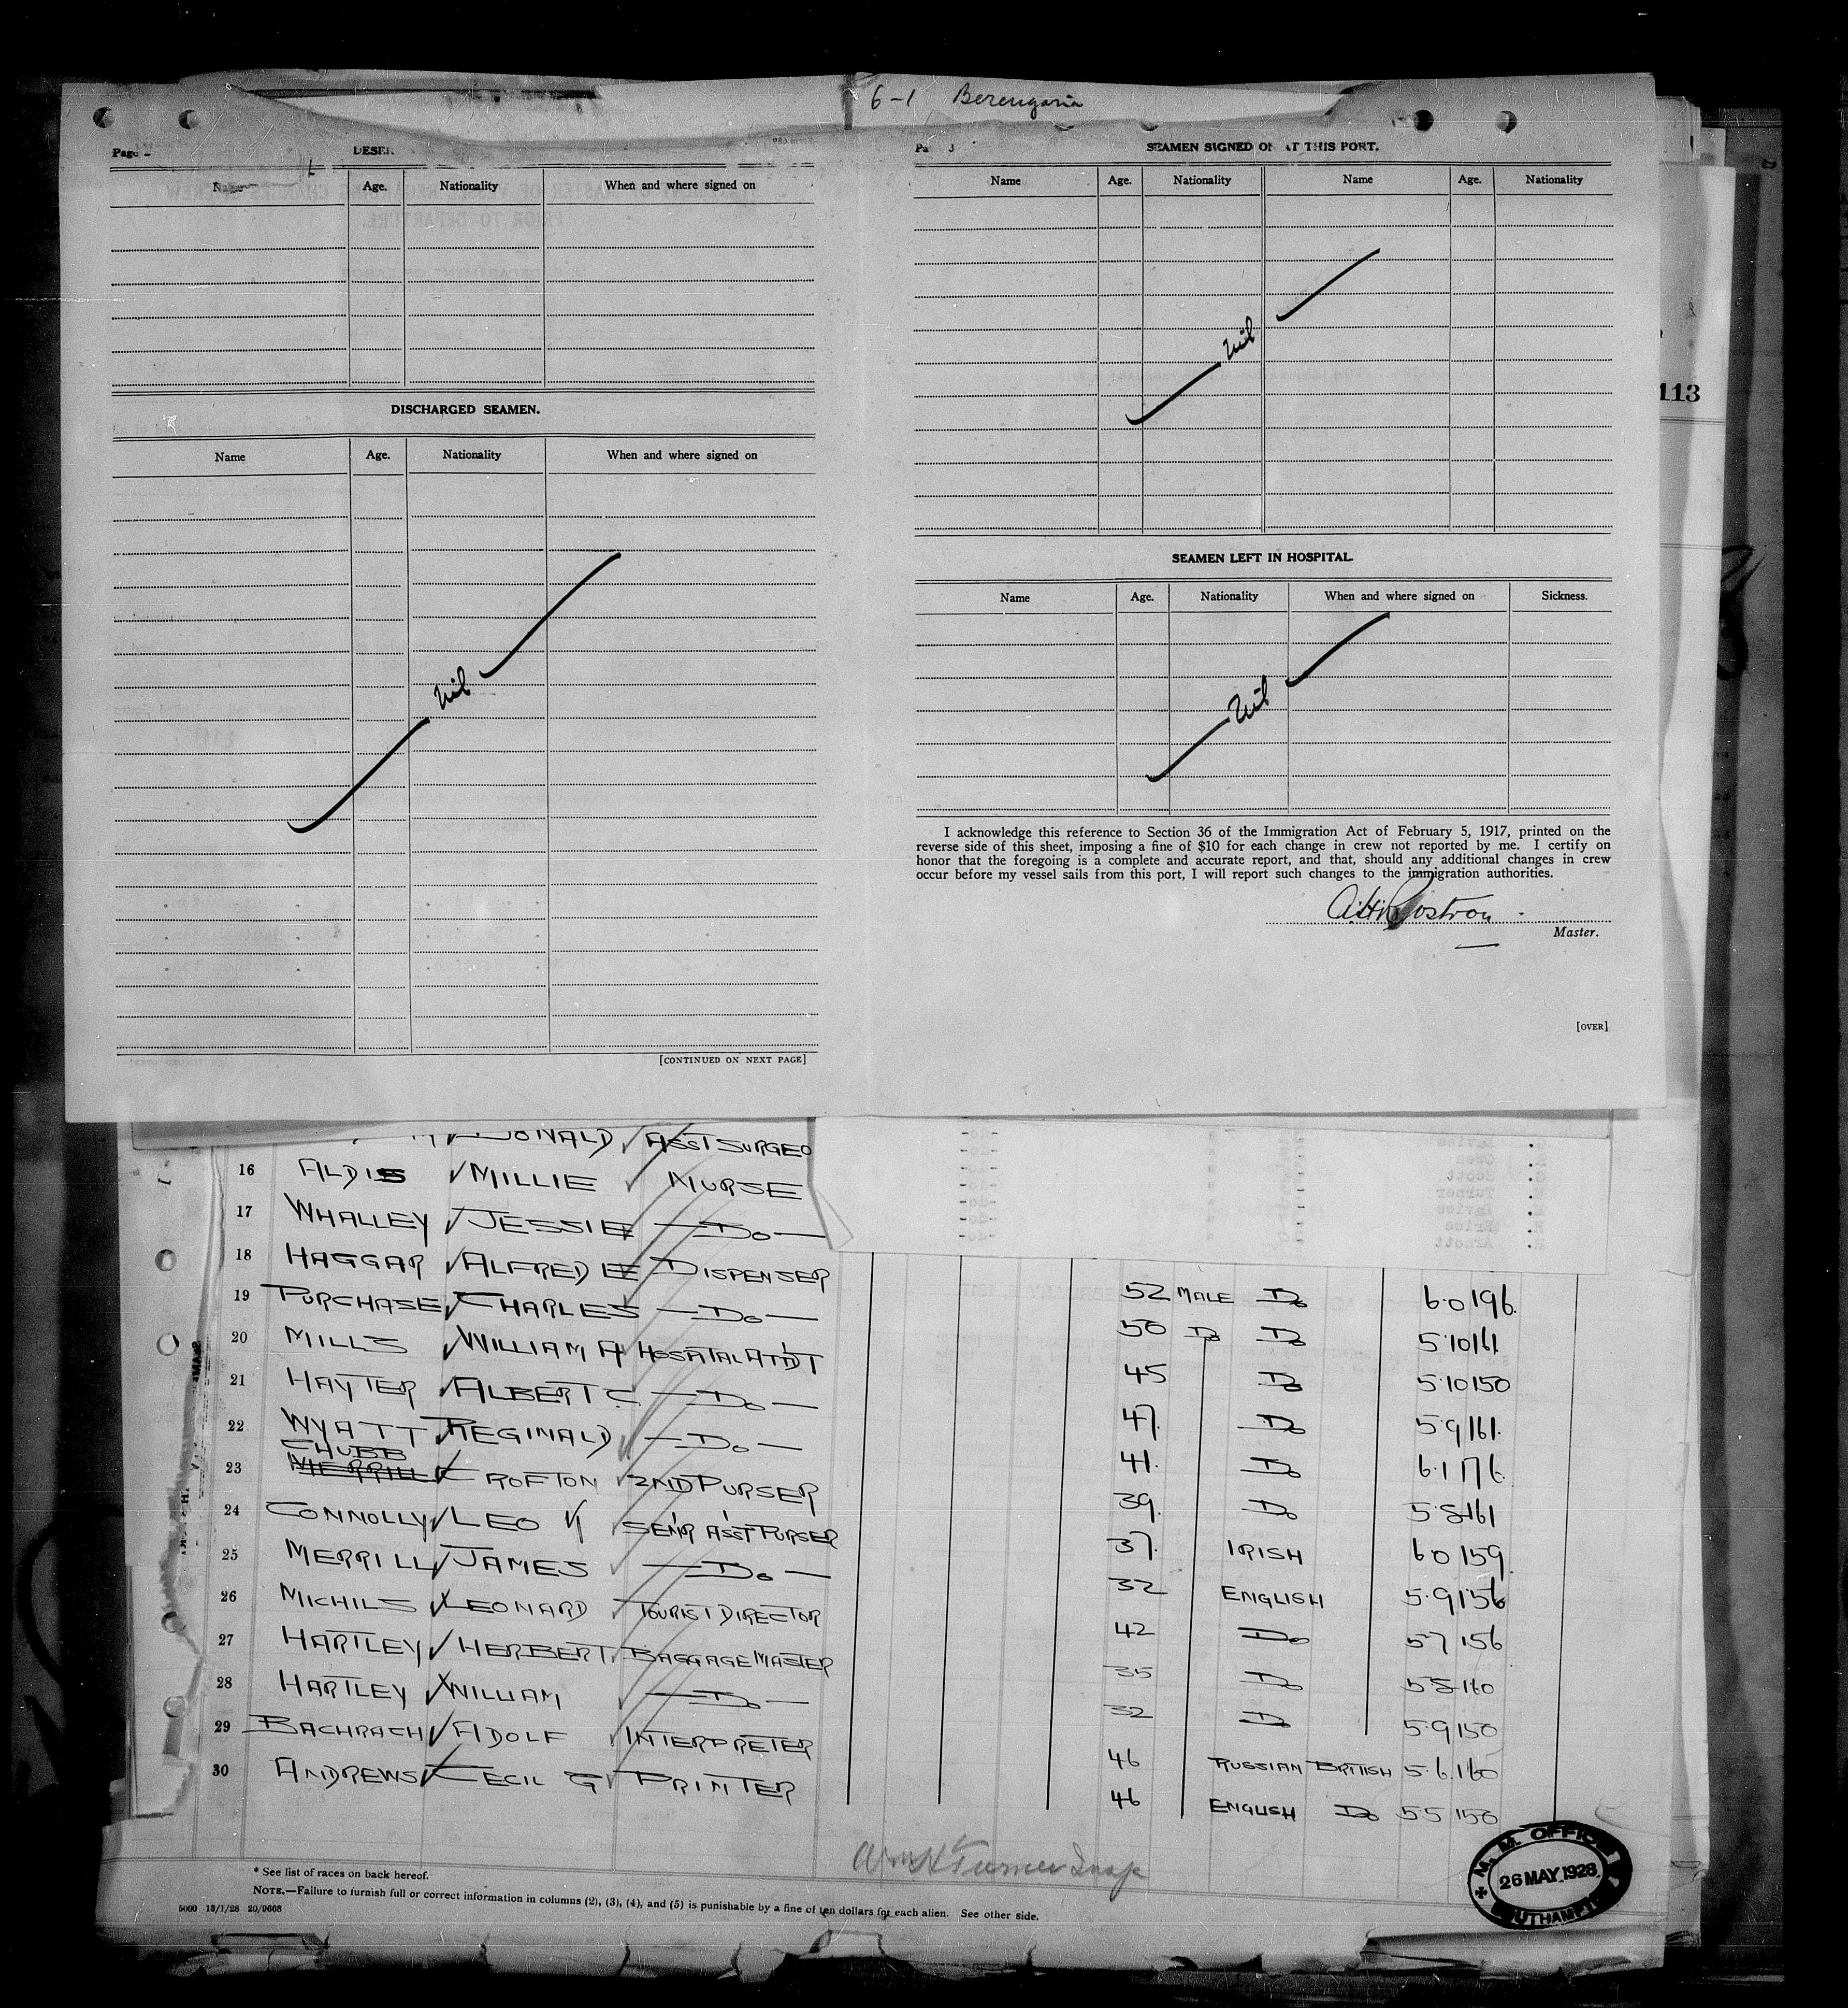 6-1 Berengaria
Page
Name Age. Nationality When and where signed on
DISCHARGED SEAMEN.
Name Age. Nationality When and where signed on
Nil
[CONTINUED ON NEXT PAGE]
SEAMEN SIGNED ON AT THIS PORT.
Name Age. Nationality Name Age. Nationality
Nil
SEAMEN LEFT IN HOSPITAL.
Name Age. Nationality When and where signed on Sickness.
Nil
I acknowledge this reference to Section 36 of the Immigration Act of February 5, 1917, printed on the
reverse side of this sheet, imposing a fine of $10 for each change in crew not reported by me. I certify on
honor that the foregoing is a complete and accurate report, and that, should any additional changes in crew
occur before my vessel sails from this port, I will report such changes to the immigration authorities.
A H Rostron
Master.
[OVER]
113
DONALD ASST SURGEO
16 ALDIS MILLIE NURSE
17 WHALLEY JESSIE Do
18 HAGGAR ALFRED E DISPENSER
19 PURCHASE CHARLES Do 52 MALE Do 6.0 196.
20 MILLS WILLIAM A HOSPITAL ATTDT 50 Do Do 5.10 161.
21 HAYTER ALBERT C. Do 45 Do 5.10 150
22 WYATT REGINALD Do 47. Do 5.9 161.
CHUBB
23 MERRILL CROFTON 2ND PURSER 41. Do 6.1 176.
24 CONNOLLY LEO V SEN'R ASS'T PURSER 39. Do 5.8 161
25 MERRILL JAMES Do 37. IRISH 6.0 159.
26 MICHILS LEONARD TOURIST DIRECTOR 32 ENGLISH 5.9 156
27 HARTLEY HERBERT BAGGAGE MASTER 42 Do 5.7 156
28 HARTLEY WILLIAM Do 35 Do 5.8 160
29 BACHRACH ADOLF INTERPRETER 32 Do 5.9 150
30 ANDREWS CECIL G PRINTER 46 RUSSIAN BRITISH 5.6. 160
46 ENGLISH Do 5.5 150
Turner Insp
* See list of races on back hereof.
NOTE.—Failure to furnish full or correct information in columns (2), (3), (4), and (5) is punishable by a fine of ten dollars for each alien. See other side.
5000 13/1/28 20/9668
M. M. OFFICE
26 MAY 1928
SOUTHAMPTON